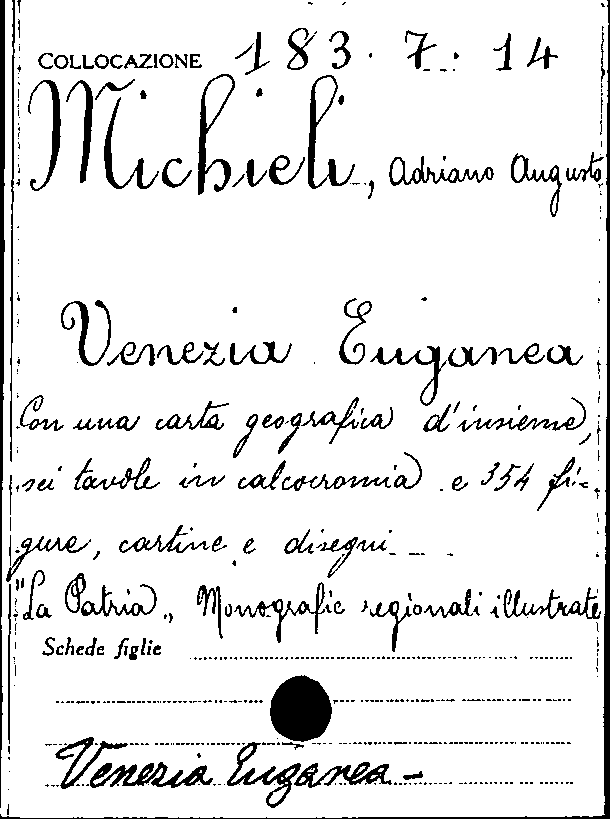 COLLOCAZIONE 183. 7. 14
Michieli, Adriano Augusto
Venezia Euganea
Con una carta geografica d'insieme,
sei tavole in calcocromia e 354 fi-
gure, cartine e disegni
"La Patria„ Monografie regionali illustrate
Schede figlie
Venezia Euganea -